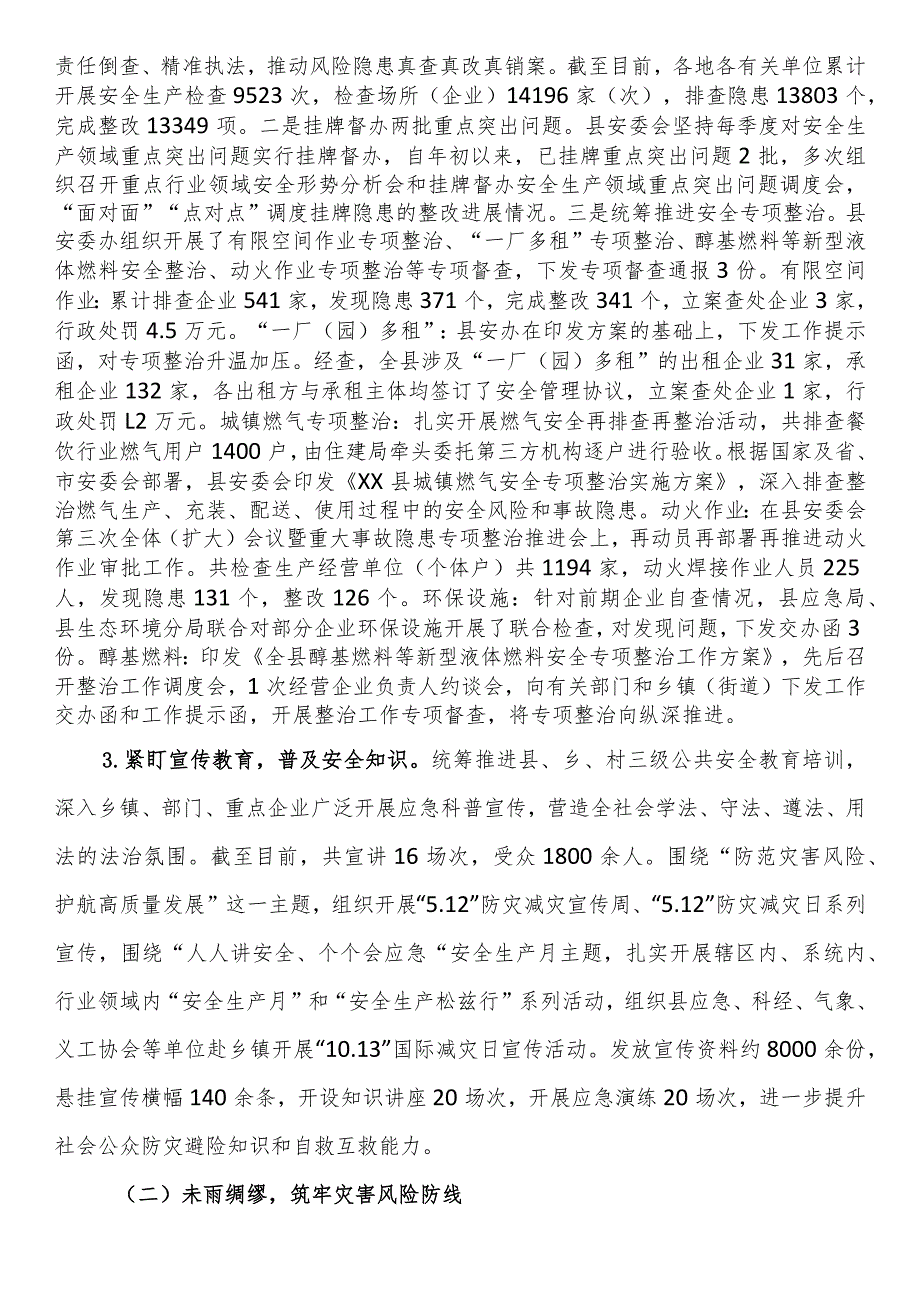 责任倒查、精准执法，推动风险隐患真查真改真销案。截至目前，各地各有关单位累计
开展安全生产检查 9523 次，检查场所（企业）14196 家（次），排查隐患 13803 个，
完成整改 13349 项。二是挂牌督办两批重点突出问题。县安委会坚持每季度对安全生
产领域重点突出问题实行挂牌督办，自年初以来，已挂牌重点突出问题 2 批，多次组
织召开重点行业领域安全形势分析会和挂牌督办安全生产领域重点突出问题调度会，
“面对面”“点对点”调度挂牌隐患的整改进展情况。三是统筹推进安全专项整治。县
安委办组织开展了有限空间作业专项整治、“一厂多租”专项整治、醇基燃料等新型液
体燃料安全整治、动火作业专项整治等专项督查，下发专项督查通报 3 份。有限空间
作业：累计排查企业 541 家，发现隐患 371 个，完成整改 341 个，立案查处企业 3 家，
行政处罚 4.5 万元。“一厂（园）多租”：县安办在印发方案的基础上，下发工作提示
函，对专项整治升温加压。经查，全县涉及“一厂（园）多租”的出租企业 31 家，承
租企业 132 家，各出租方与承租主体均签订了安全管理协议，立案查处企业 1 家，行
政处罚 L2 万元。城镇燃气专项整治：扎实开展燃气安全再排查再整治活动，共排查餐
饮行业燃气用户 1400 户，由住建局牵头委托第三方机构逐户进行验收。根据国家及省、
市安委会部署，县安委会印发《XX 县城镇燃气安全专项整治实施方案》，深入排查整
治燃气生产、充装、配送、使用过程中的安全风险和事故隐患。动火作业：在县安委会
第三次全体（扩大）会议暨重大事故隐患专项整治推进会上，再动员再部署再推进动火
作业审批工作。共检查生产经营单位（个体户）共 1194 家，动火焊接作业人员 225
人，发现隐患 131 个，整改 126 个。环保设施：针对前期企业自查情况，县应急局、
县生态环境分局联合对部分企业环保设施开展了联合检查，对发现问题，下发交办函 3
份。醇基燃料：印发《全县醇基燃料等新型液体燃料安全专项整治工作方案》，先后召
开整治工作调度会，1 次经营企业负责人约谈会，向有关部门和乡镇（街道）下发工作
交办函和工作提示函，开展整治工作专项督查，将专项整治向纵深推进。
3. 紧盯宣传教育，普及安全知识。统筹推进县、乡、村三级公共安全教育培训，
深入乡镇、部门、重点企业广泛开展应急科普宣传，营造全社会学法、守法、遵法、用
法的法治氛围。截至目前，共宣讲 16 场次，受众 1800 余人。围绕“防范灾害风险、
护航高质量发展”这一主题，组织开展“5.12”防灾减灾宣传周、“5.12”防灾减灾日系列
宣传，围绕“人人讲安全、个个会应急“安全生产月主题，扎实开展辖区内、系统内、
行业领域内“安全生产月”和“安全生产松兹行”系列活动，组织县应急、科经、气象、
义工协会等单位赴乡镇开展“10.13”国际减灾日宣传活动。发放宣传资料约 8000 余份，
悬挂宣传横幅 140 余条，开设知识讲座 20 场次，开展应急演练 20 场次，进一步提升
社会公众防灾避险知识和自救互救能力。
（二）未雨绸缪，筑牢灾害风险防线